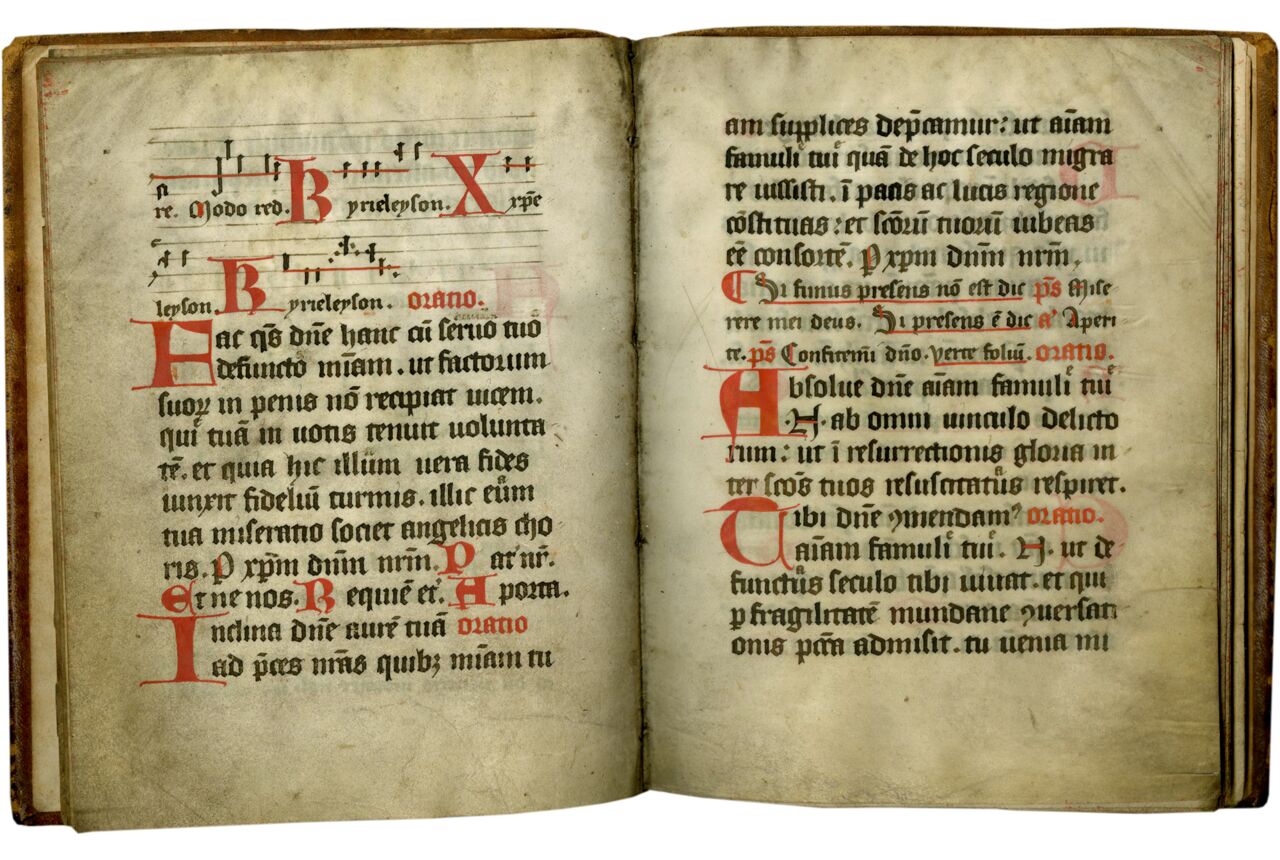 re. Modo red. Kyrieleyson. Xxp̄e
leyson. Kyrieleyson. oratio.
Fac q̄s dn̄e hanc cū seruo tuo
defuncto mīam. ut factorum
suoꝝ in penis nō recipiat uicem.
qui tuā in uotis tenuit uolunta
tē. et quia hic illum uera fides
iunxit fideliū turmis. illic eum
tua miseratio societ angelicis cho
ris. P xp̄m dn̄m nr̄m. Pat nr̄.
Et ne nos. Requiē et̄. A porta.
Inclina dn̄e aurē tuā oratio
ad p̄ces nr̄as quibꝫ mīam tu
am supplices dep̄camur: ut aīam
famuli tui quā de hoc seculo migra
re iussisti. ī pacis ac lucis regione
cōstituas: et sc̄orū tuorū iubeas
eē consortē. P xp̄m dn̄m nr̄m.
Si funus presens nō est dic pō Mise-
rere mei deus. Si presens ē dic a͛ Aperi-
te. pō Confitemī dn̄o. verte foliū. oratio.
Absolue dn̄e aīam famuli tui
.N. ab omni uinculo delicto
rum: ut ī resurrectionis gloria in
ter sc̄os tuos resuscitatus respiret.
Tibi dn̄e ꝯmendamꝰ oratio.
aīam famuli tui. N. ut de
functus seculo tibi uiuat. et qui
ꝑ fragilitatē mundane ꝯuersati
onis pcc̄a admisit. tu uenia mi